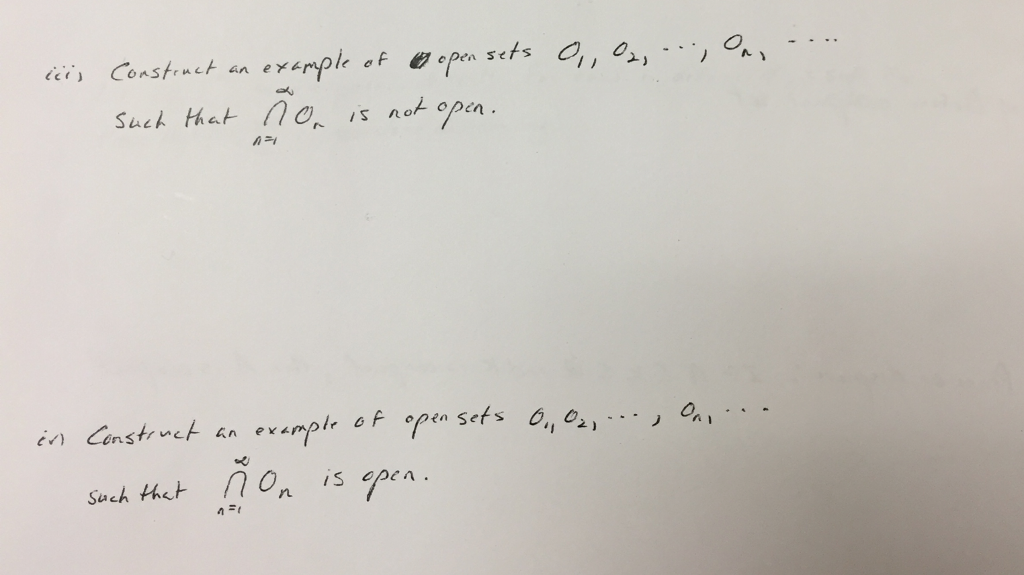 iii) Construct an example of open sets O₁, O₂, ..., Oₙ, ....
such that ⋂ₙ₌₁^∞ Oₙ is not open.
iv) Construct an example of open sets O₁, O₂, ..., Oₙ, ...
such that ⋂ₙ₌₁^∞ Oₙ is open.